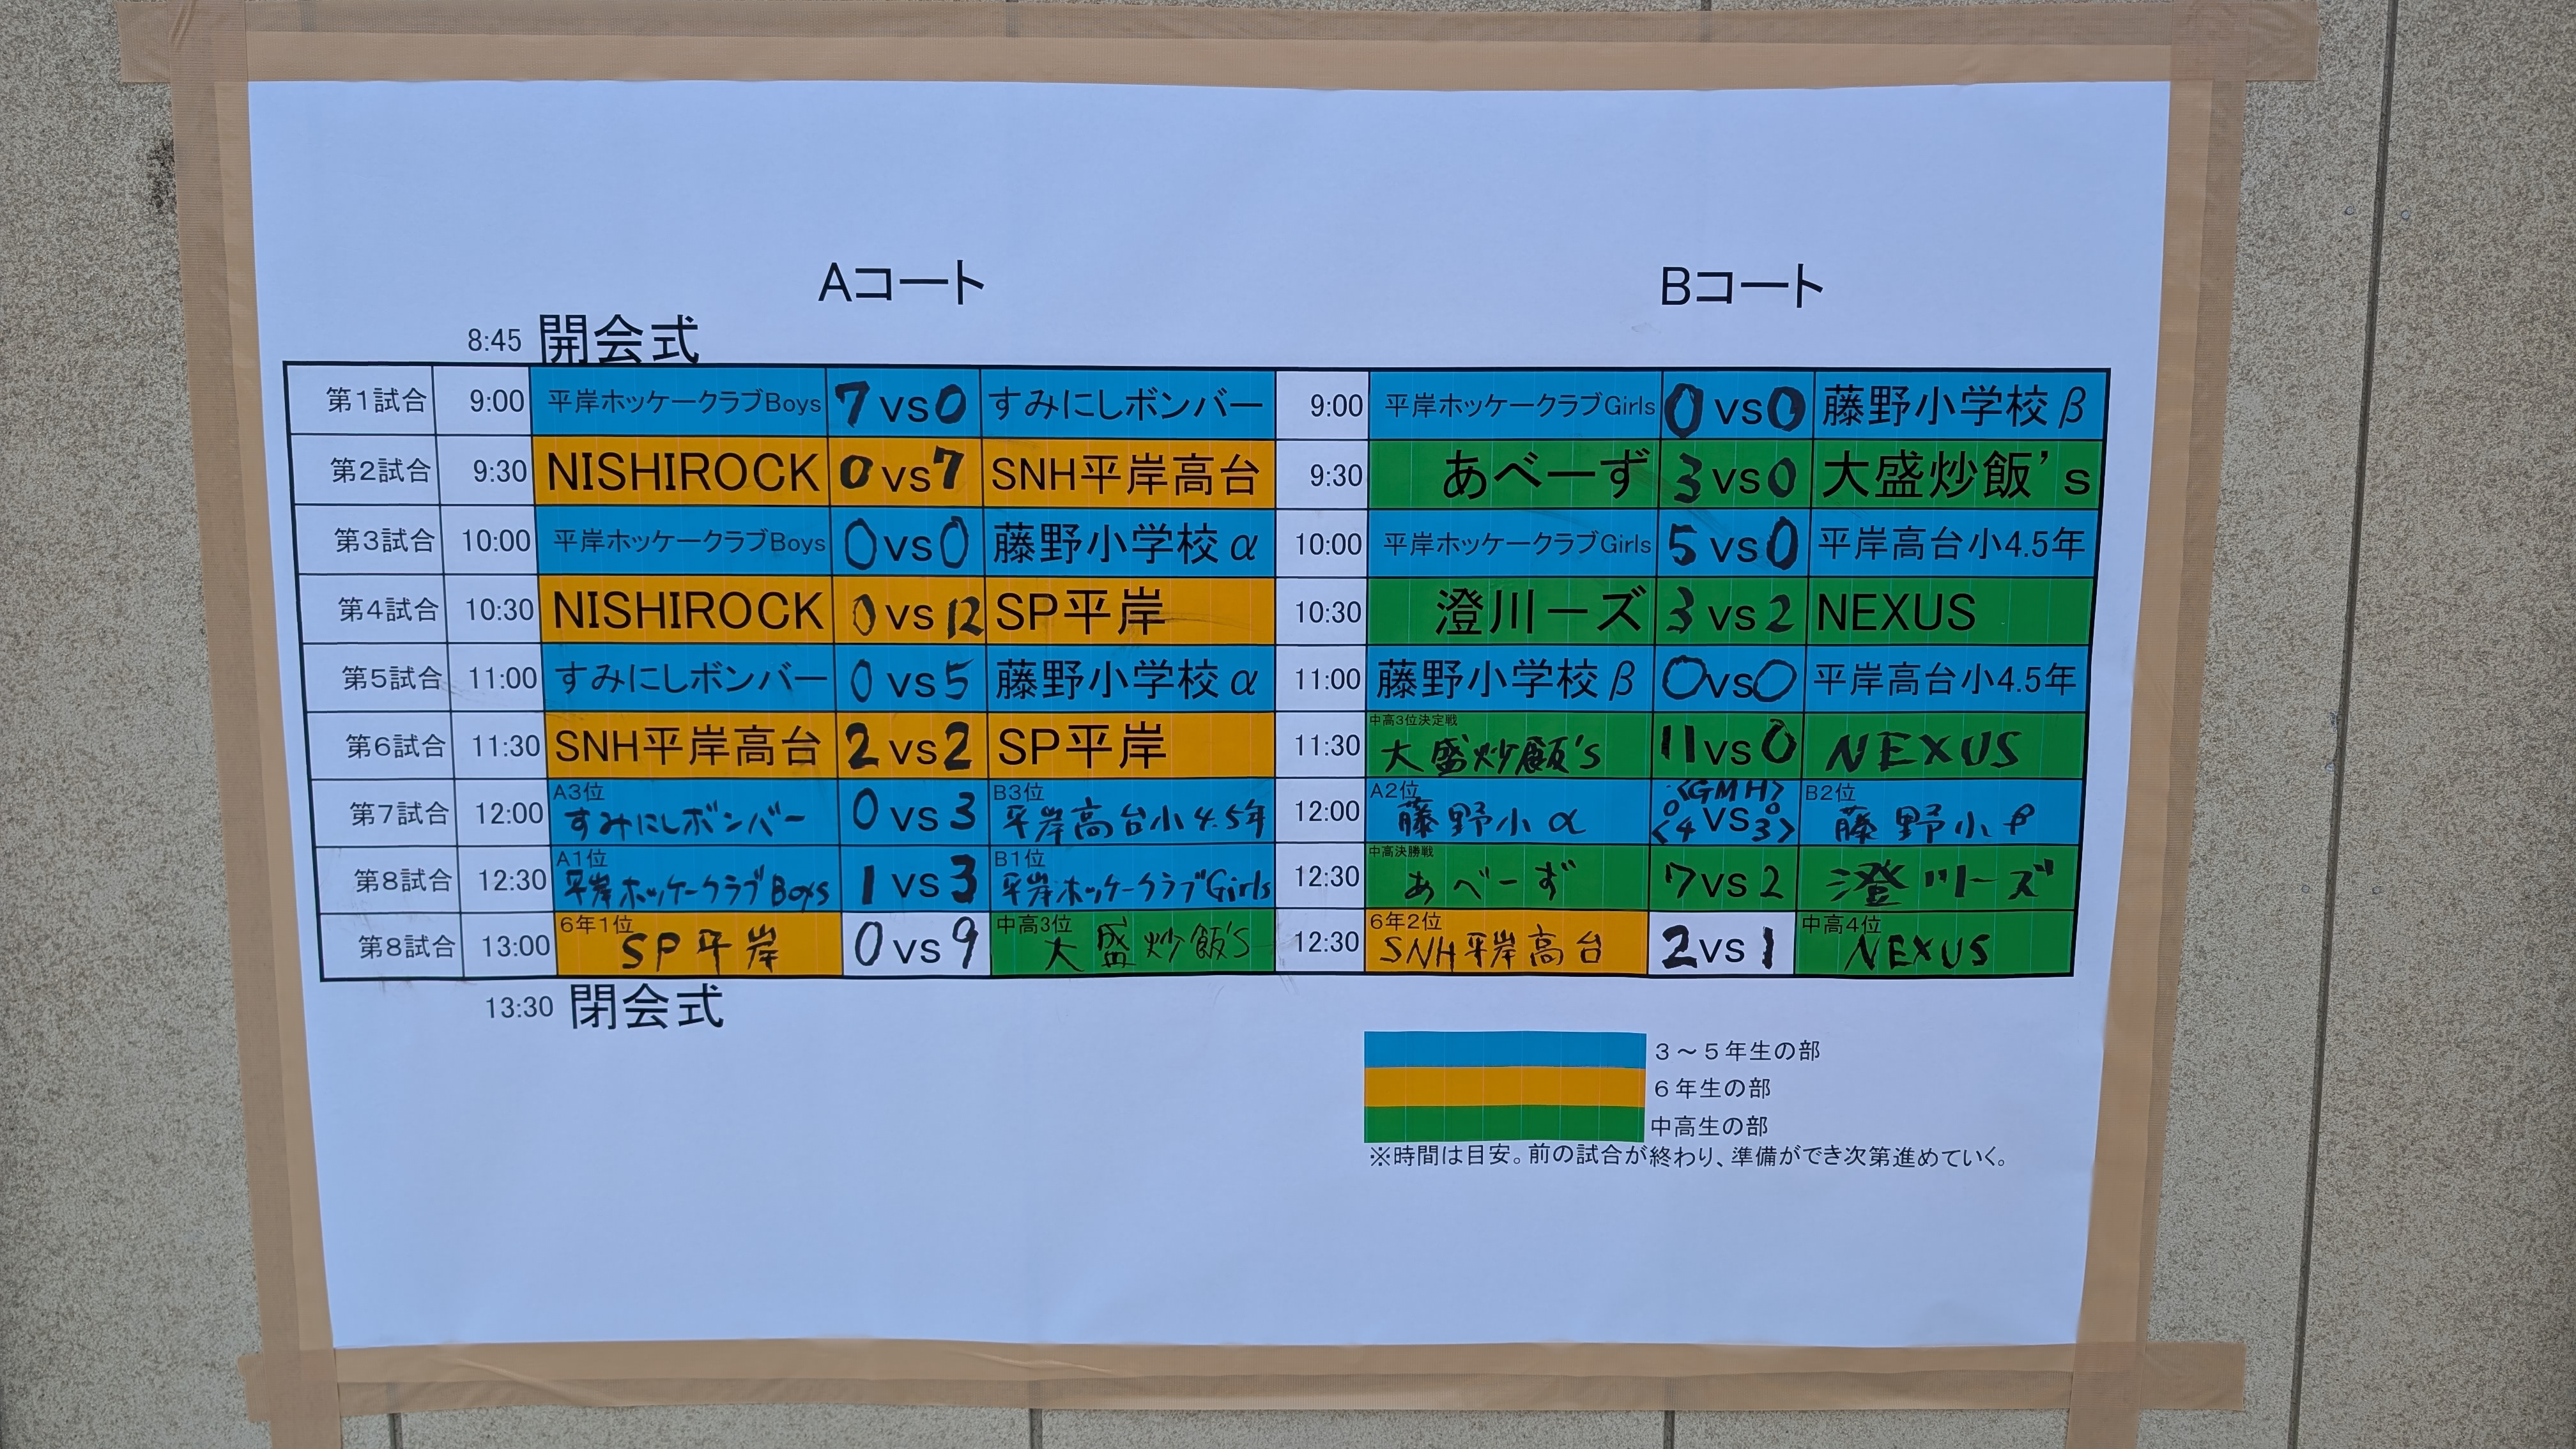 Aコート Bコート
8:45 開会式
第1試合 9:00 平岸ホッケークラブBoys 7 vs 0 すみにしボンバー 9:00 平岸ホッケークラブGirls 0 vs 0 藤野小学校β
第2試合 9:30 NISHIROCK 0 vs 7 SNH平岸高台 9:30 あべーず 3 vs 0 大盛炒飯's
第3試合 10:00 平岸ホッケークラブBoys 0 vs 0 藤野小学校α 10:00 平岸ホッケークラブGirls 5 vs 0 平岸高台小4.5年
第4試合 10:30 NISHIROCK 0 vs 12 SP平岸 10:30 澄川ーズ 3 vs 2 NEXUS
第5試合 11:00 すみにしボンバー 0 vs 5 藤野小学校α 11:00 藤野小学校β 0 vs 0 平岸高台小4.5年
第6試合 11:30 SNH平岸高台 2 vs 2 SP平岸 11:30 中高3位決定戦 大盛炒飯's 11 vs 0 NEXUS
第7試合 12:00 A3位 すみにしボンバー 0 vs 3 B3位 平岸高台小4.5年 12:00 A2位 藤野小α <GMH> 0 vs 0 <4 3> B2位 藤野小β
第8試合 12:30 A1位 平岸ホッケークラブBoys 1 vs 3 B1位 平岸ホッケークラブGirls 12:30 中高決勝戦 あべーず 7 vs 2 澄川ーズ
第8試合 13:00 6年1位 SP平岸 0 vs 9 中高3位 大盛炒飯'S 12:30 6年2位 SNH平岸高台 2 vs 1 中高4位 NEXUS
13:30 閉会式
3～5年生の部
6年生の部
中高生の部
※時間は目安。前の試合が終わり、準備ができ次第進めていく。